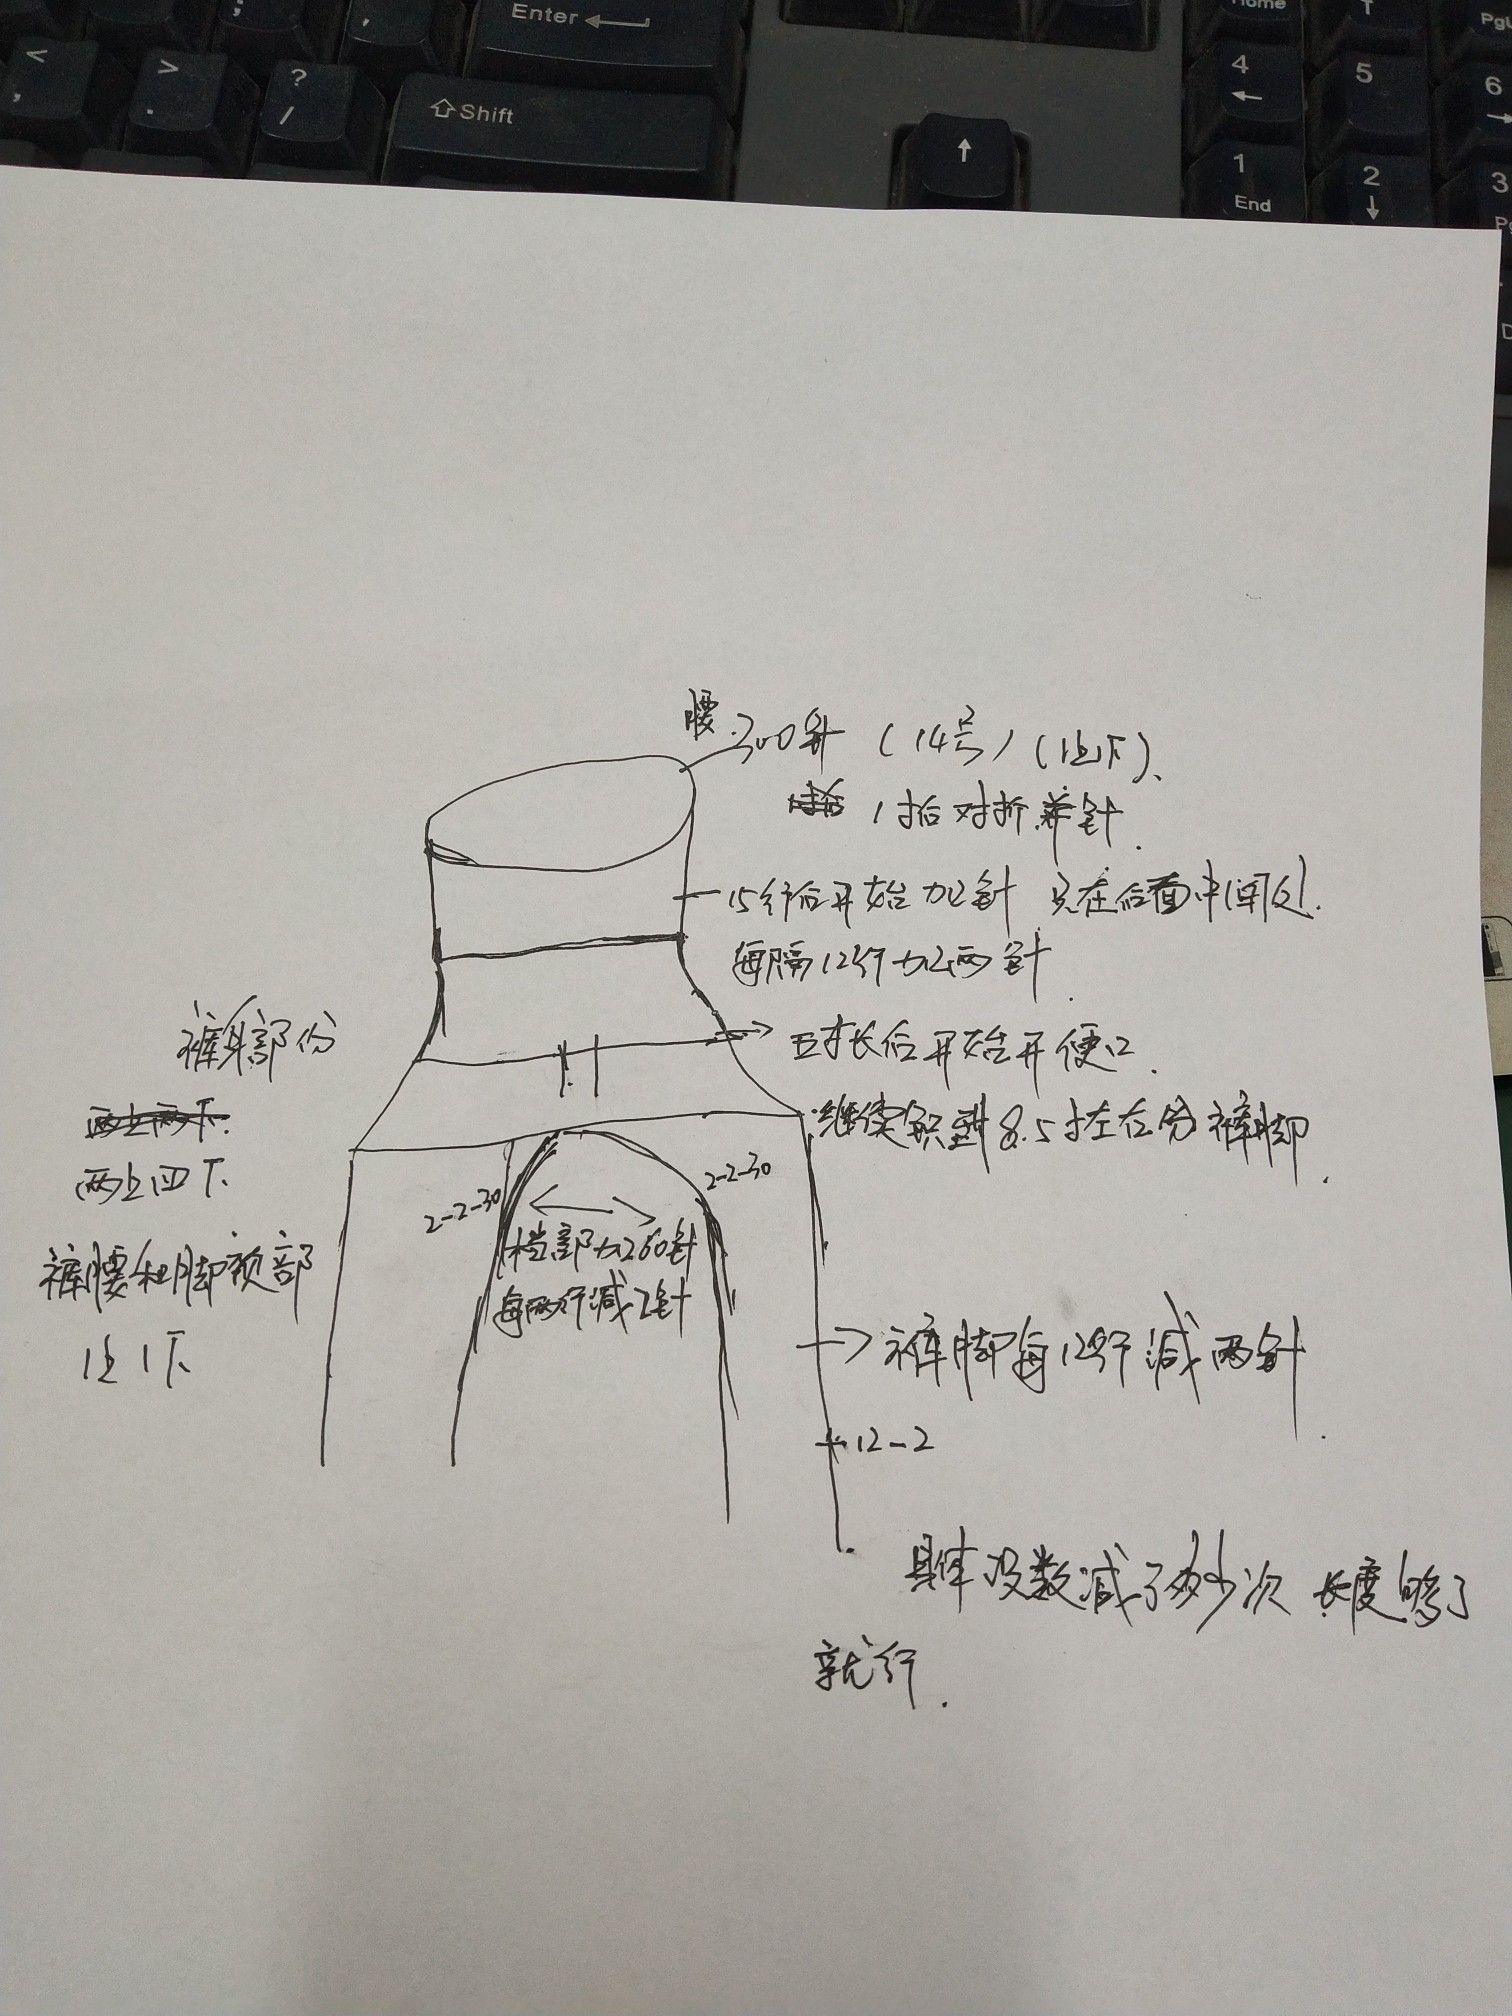 Enter
Shift
Home
PgU
4
5
6
1
End
2
3
<
,
>
.
?
/
;
腰 300针 (14号) (1上1下)、
1寸后对折并针
15行后开始加针 只在后面中间处.
每隔12行加两针
五寸长后开始开便口.
继续织到8.5寸左右分裤脚.
裤身部份
两上两下.
两上四下.
裤腰和脚颈部
1上1下.
2-2-30
2-2-30
档部加260针
每两行减2针
裤脚每12行减两针.
12-2
具体没数减了多少次 长度够了
就行.